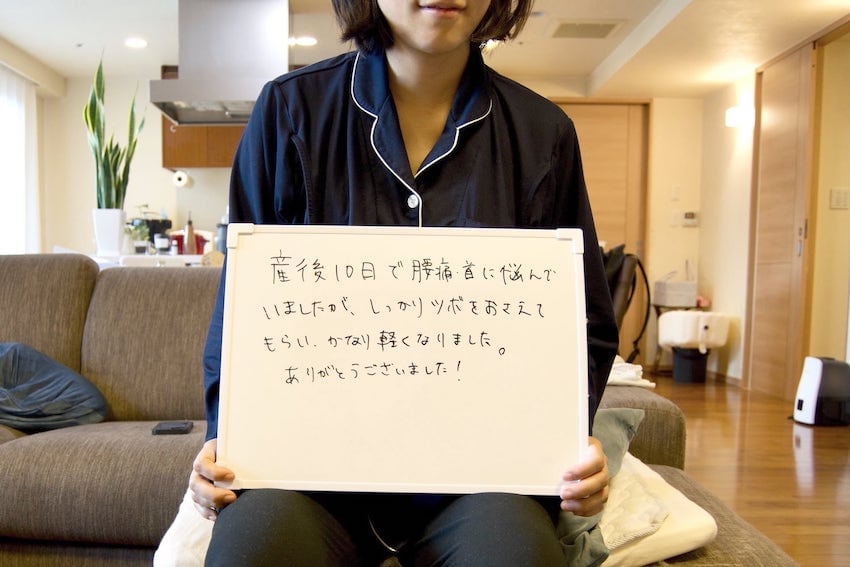 産後10日で腰痛・首に悩んで
いましたが、しっかりツボをおさえて
もらい、かなり軽くなりました。
ありがとうございました！